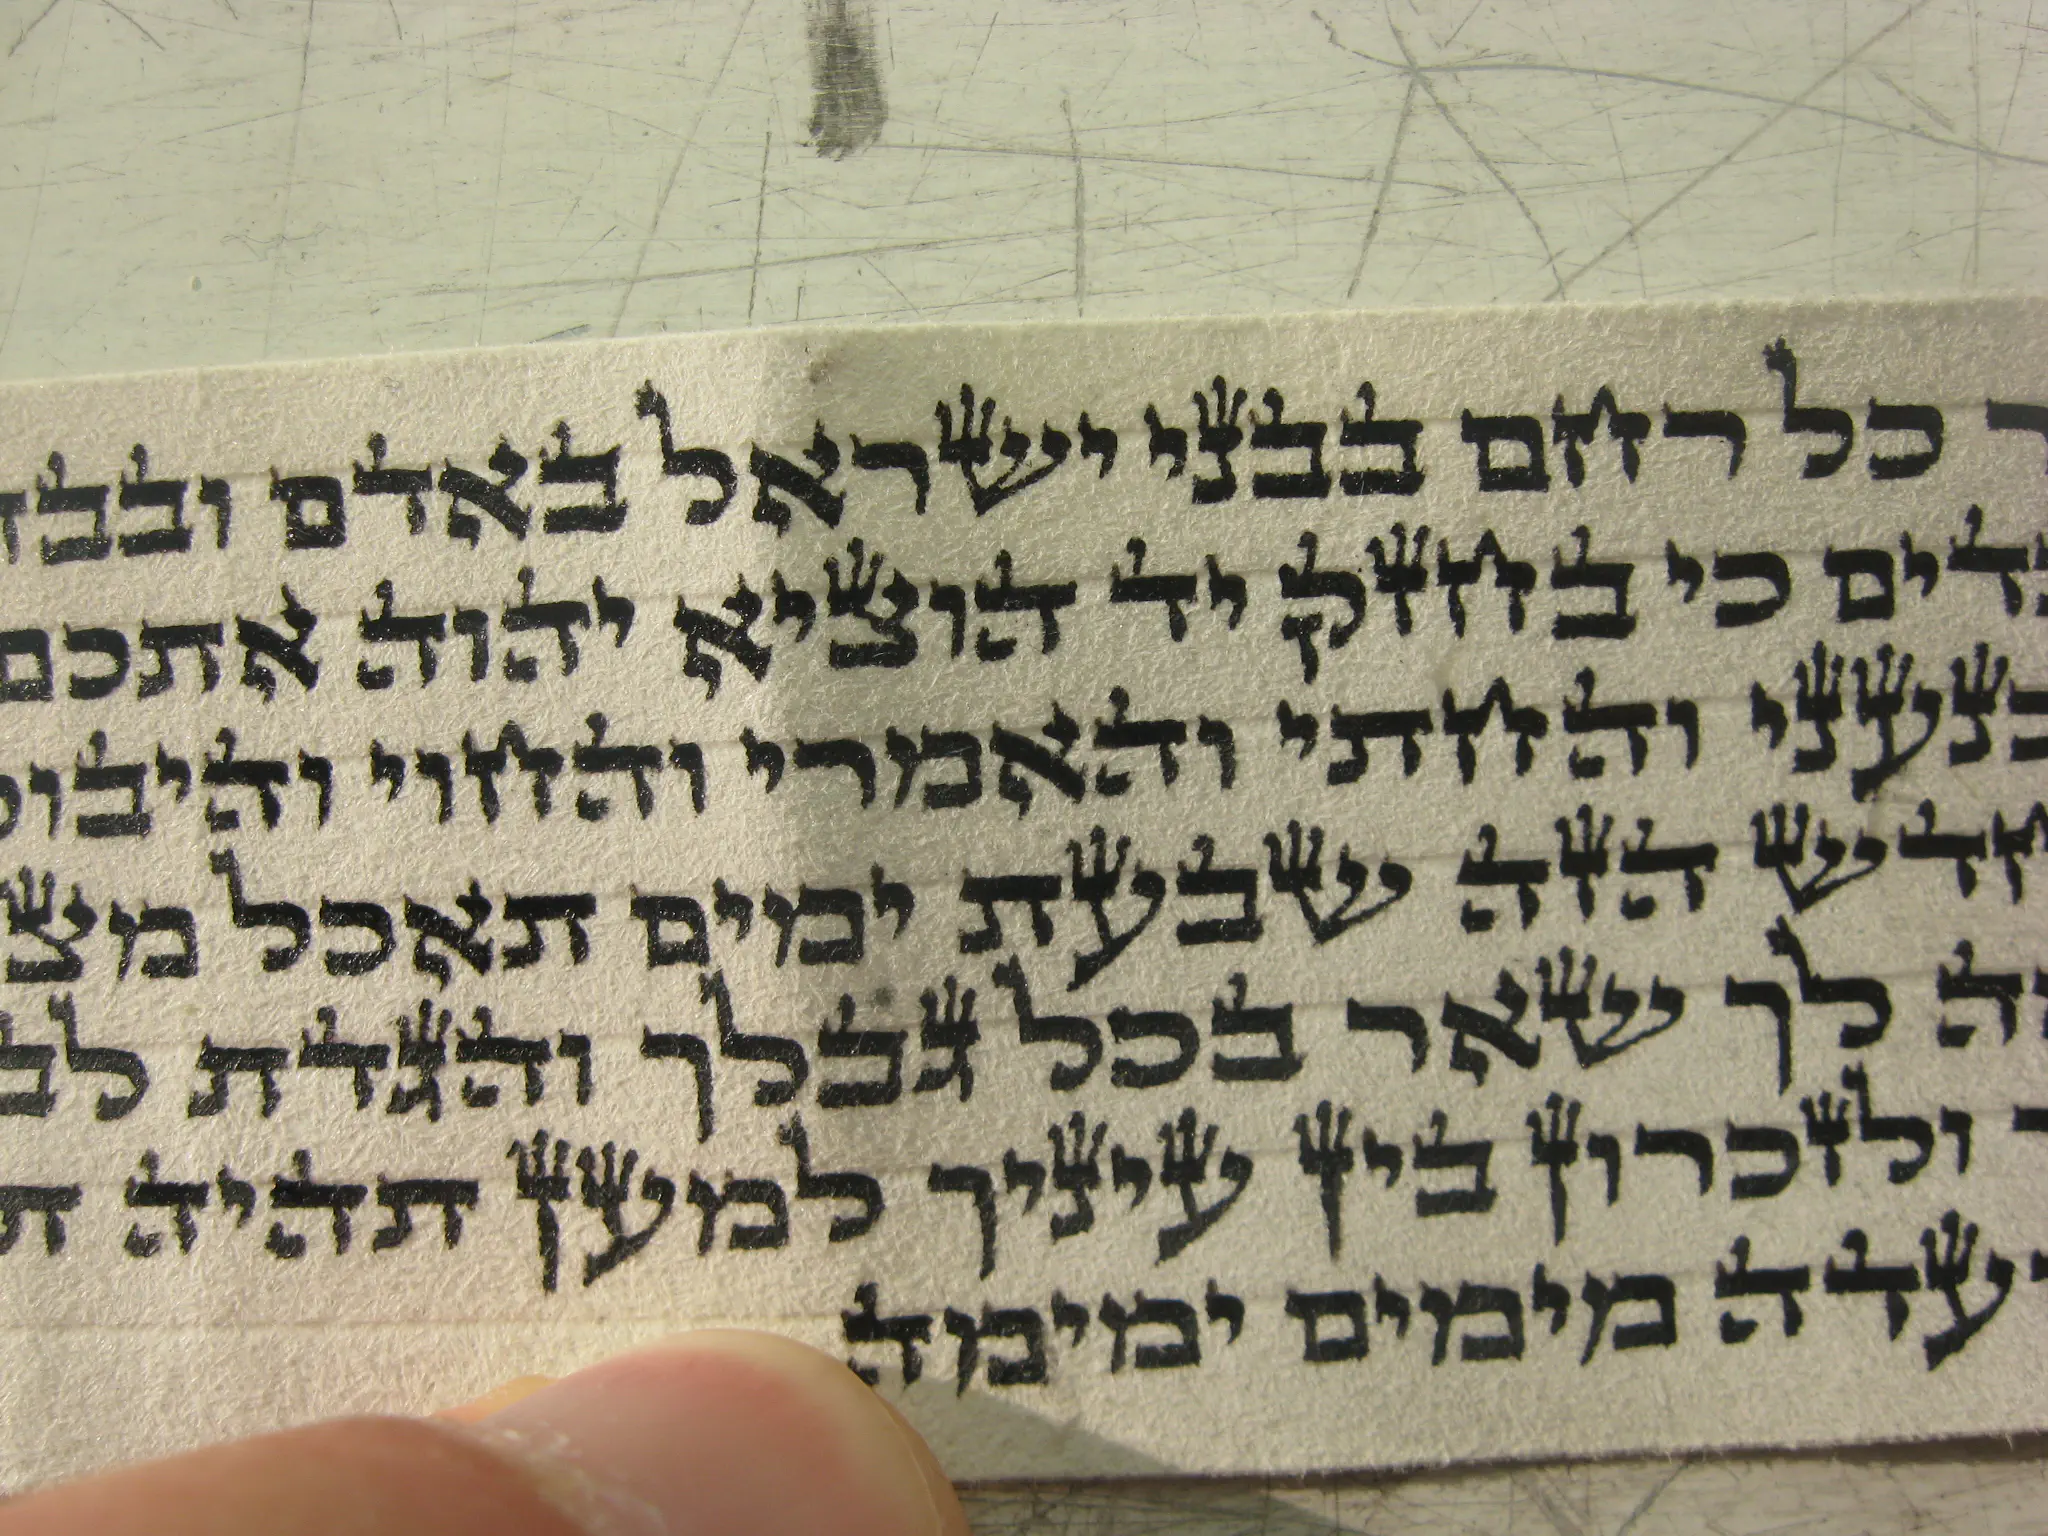 ר כל רחם בבני ישראל באדם ובבה
בדים כי בחזק יד הוציא יהוה אתכם
כנעני והחתי והאמרי והחוי והיבוס
חדש הזה שבעת ימים תאכל מצ
ה לך שאר בכל גבלך והגדת לב
ולזכרון בין עיניך למען תהיה ת
ועדה מימים ימימה